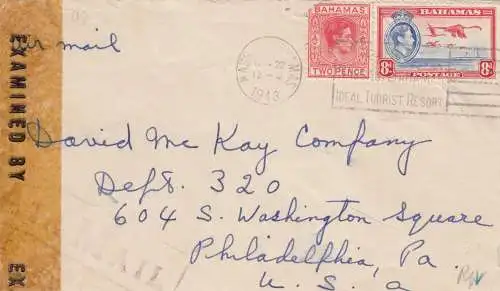 EXAMINED BY
EX
air mail
BAHAMAS
TWO PENCE
BAHAMAS
8D
POSTAGE
8D
1943
IDEAL TOURIST RESORT
David Mc Kay Company
Dept. 320
604 S. Washington Square
Philadelphia, Pa.
U. S. a